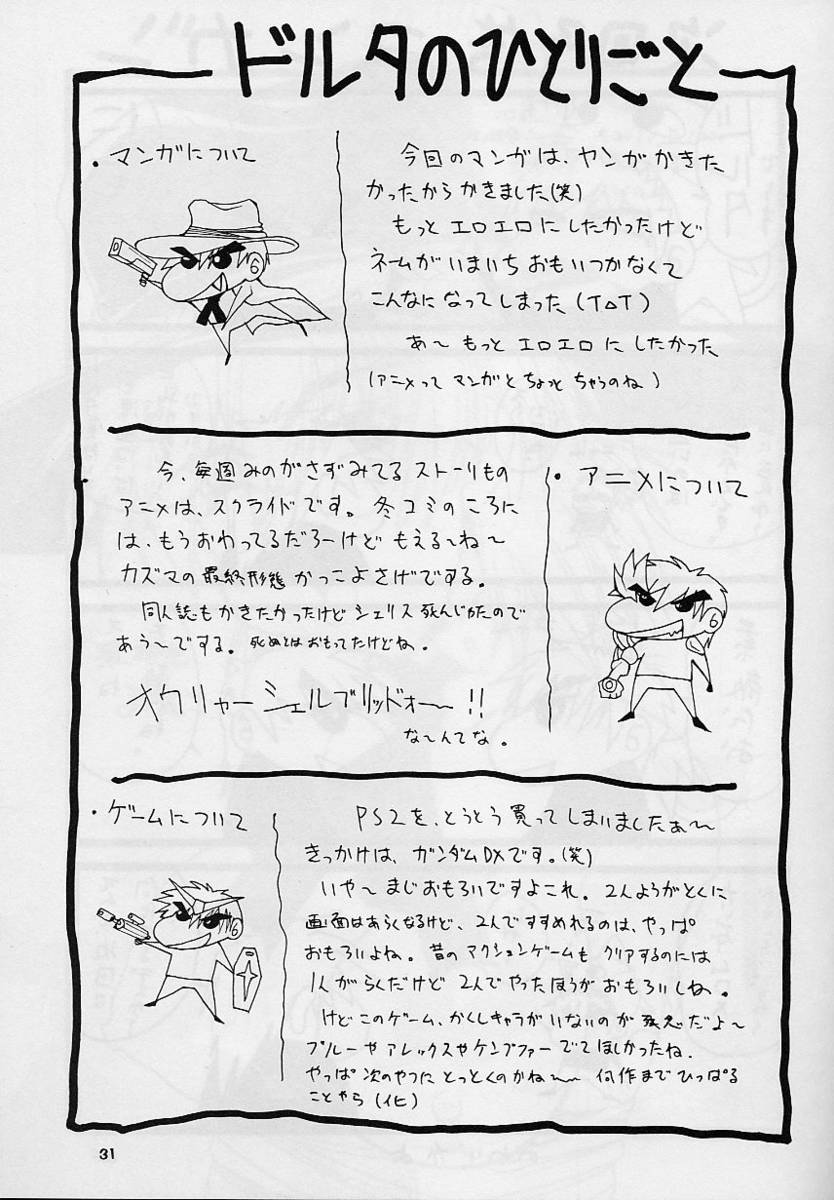 ドルタのひとりごと
・マンガについて
今回のマンガは、ヤンがかきた
かったからかきました(笑)
もっとエロエロにしたかったけど
ネームがいまいちおもいつかなくて
こんなになってしまった(T△T)
あ〜もっとエロエロにしたかった
(アニメってマンガとちょっとちゃうのね)
・アニメについて
今、毎週みのがさずみてるストーリもの
アニメは、スクライドです。冬コミのころに
は、もうおわってるだろーけどもえる〜ね〜
カズマの最終形態かっこよさげでする。
同人誌もかきたかったけどシェリス死んじがたので
あう〜でする。死ぬとはおもってたけどね。
オクリャーシェルブリッドォー〜!!
な〜んてな。
・ゲームについて
PS2を、とうとう買ってしまいましたぁ〜
きっかけは、ガンダムDXです。(笑)
いや〜まじおもろいですよこれ。2人ようがとくに
画面はあらくなるけど、2人ですすめれるのは、やっぱ
おもろいよね。昔のアクションゲームもクリアするのには
1人がらくだけど2人でやったほうがおもろいしね。
けどこのゲーム、かくしキャラがいないのが残念だよ〜
ブルーやアレックスやケンプファーでてほしかったね.
やっぱ次のやつにとっとくのかね〜〜何作までひっぱる
ことやら(化)
31